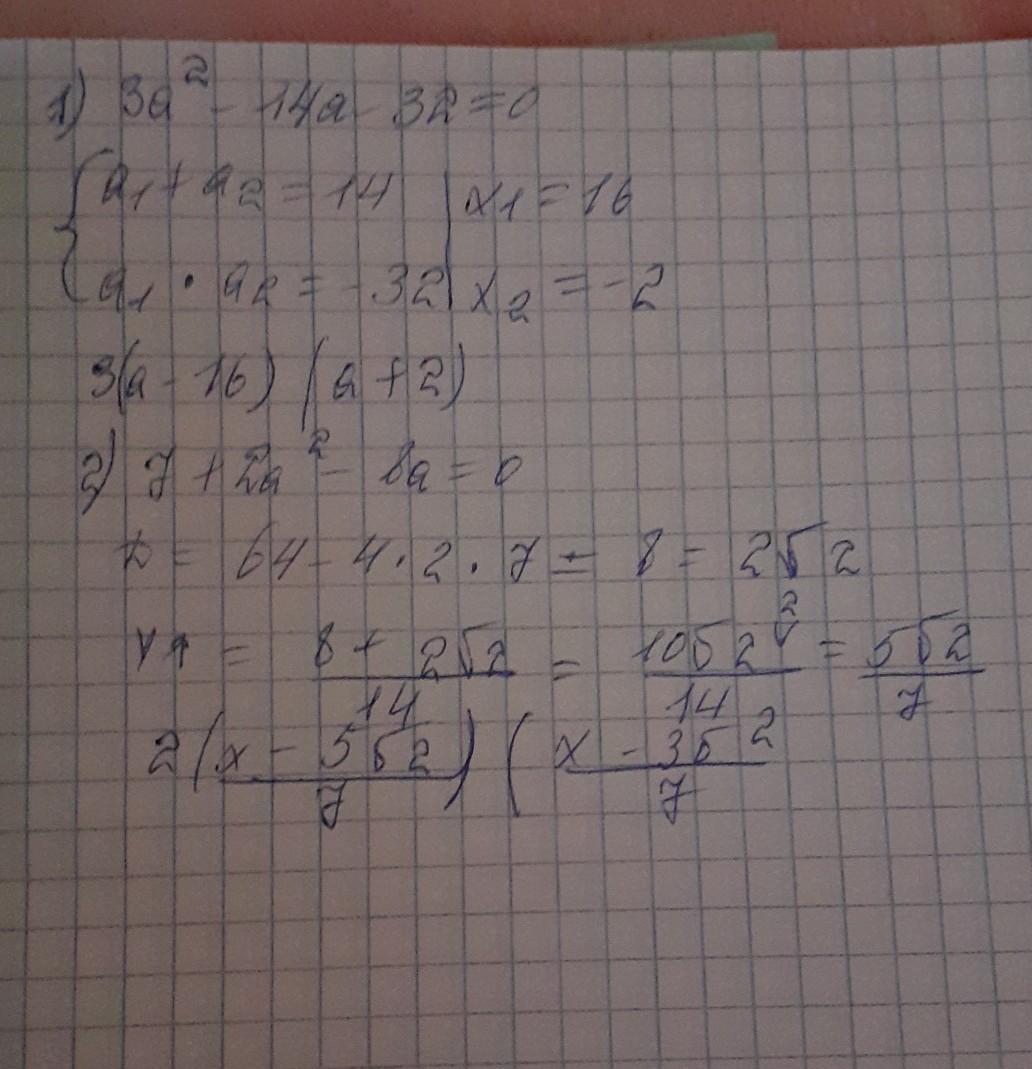 1) 3a² - 14a - 32 = 0
{ a₁ + a₂ = 14 | x₁ = 16
a₁ · a₂ = -32 | x₂ = -2
3(a - 16) (a + 2)
2) 7 + 2a² - 8a = 0
D = 64 - 4 · 2 · 7 = 8 = 2√2
x₁ = (8 + 2√2)/14 = (10√2)/14 = (5√2)/7
2((x - 5√2)/7) ((x - 3√2)/7